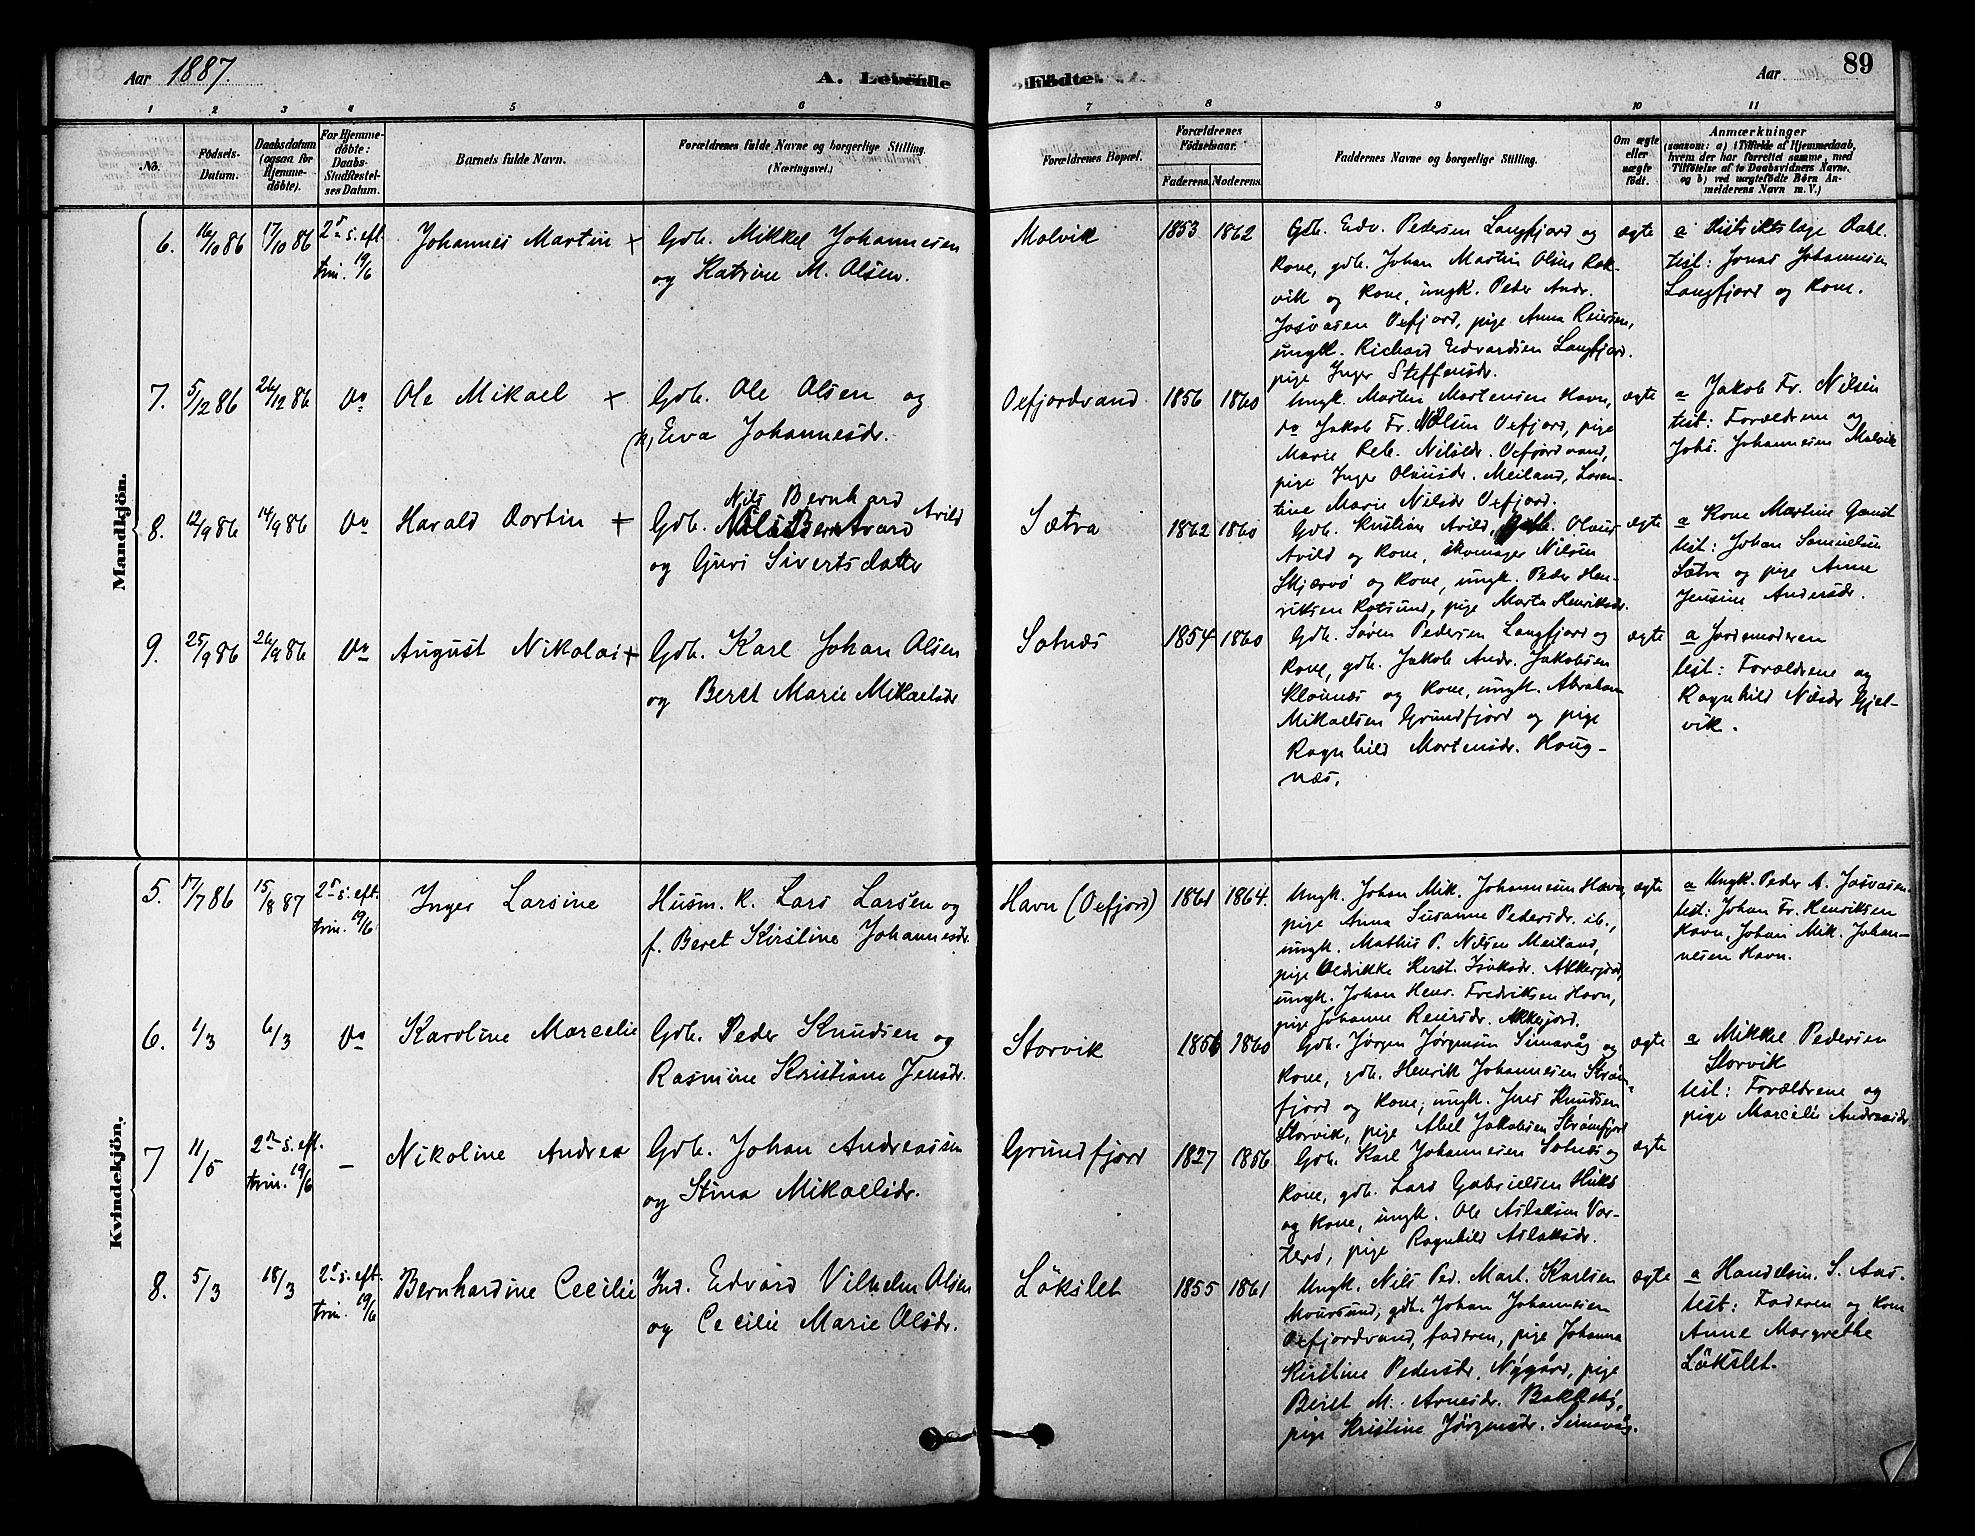 Aar 1887.
A. Levende
Födte.
Aar
89
1 2 3 4 5 6 7 8 9 10 11
No.
Födsels-
Datum.
Daabsdatum
(ogsaa for
Hjemme-
döbte).
For Hjemme-
döbte:
Daabs-
Stadfæstel-
ses Datum.
Barnets fulde Navn.
Forældrenes fulde Navne og borgerlige Stilling.
(Næringsvei.)
Forældrenes Bopæl.
Forældrenes
Födselsaar.
Faderens. Moderens.
Faddernes Navne og borgerlige Stilling.
Om ægte
eller
uægte
födt.
Anmærkninger
(saasom: a) i Tilfælde af Hjemmedaab,
hvem der har forrettet samme, med
Tilföielse af to Daabsvidners Navne,
og b) ved uægtefödte Börn An-
melderens Navn m. V.)
Mandkjön.
6.
16/10 86
17/10 86
2den s. eft.
trin. 19/6
Johannes Martin +
Gdb. Mikkel Johannesen
og Katrine M. Olsen.
Malvik
1853
1862
Gdb. Edv. Pedersen Langfjord og
kone, gdb. Johan Martin Olsen Rak-
vik og kone, ungk. Peder Andr.
Josvasen Oxfjord, pige Anna Reiersen,
ungk. Richard Edvardsen Langfjord.
pige Inger Steffensdr.
ægte
a Distriktslæge Dahl.
test: Jonas Johannesen
Langfjord og kone.
7.
5/12 86
26/12 86
Do
Ole Mikael +
Gdb. Ole Olsen og
Eva Johannesdr.
Oxfjordvand
1856
1860
Ungk. Martin Mortensen Havn,
do Jakob Fr. Nilsen Oxfjord, pige
Marie Reb. Nilsdr. Oxfjordvand,
pige Inger Olausdr. Meiland, Loren-
tine Marie Nilsdr Oxfjord.
ægte
a Jakob Fr. Nilsen
test: Forældrene og
Johs. Johannesen Malvik
8.
12/9 86
14/9 86
Do
Harald Dortin +
Nils Bernhard
Gdb. Arild
og Guri Sivertsdatter
Sætra
1862
1860
Gdb. Kristian Arild, Gdb. Olaus
Arild og kone, skomager Nilsen
Skjærvö og kone, ungk. Peder Hen-
riksen Rotsund, pige Marta Henriksdr.
ægte
a Kone Martine
test: Johan Samuelsen
Sætra og pige Anne
Jensine Andersdr.
9.
25/9 86
26/9 86
Do
August Nikolai +
Gdb. Karl Johan Olsen
og Beret Marie Mikaelsdr
Sotnæs
1854
1860
Gdb. Sören Pedersen Langfjord og
kone, gdb. Jakob Andr. Jakobsen
og kone, ungk. Abraham
Mikaelsen Grundfjord og pige
Ragnhild Mortensdr. Haug-
næs.
ægte
a Jordemoderen
test: Forældrene og
Ragnhild Nilsdr Gjøl-
vik.
Kvindekjön.
5.
17/7 86
15/8 87
2den s. eft.
trin. 19/6
Inger Larsine
Husm. k. Lars Larsen og
f. Beret Kirstine Johannesdr
Havn (Oxfjord)
1861
1864.
Ungk. Johan Mik. Johannesen Havn,
pige Anna Susanne Pedersdr. ib.,
ungk. Mathis P. Nilsen Meiland,
pige Oldrikke Kerst. Isaksdr. Akkarfjord,
ungk. Johan Henr. Fredriksen Havn,
pige Johanne Reiersdr. Akkarfjord.
ægte
a Ungk. Peder A. Josvasen
test: Johan Fr. Henriksen
Havn, Johan Mik. Johan-
nesen Havn.
6.
1/3
6/3
Do
Karoline Marcelie
Gdb. Peder Knudsen og
Rasmine Kristiane Jensdr.
Storvik
1856
1860
Gdb. Jörgen Jörgensen Simavåg og
kone, gdb. Henrik Johannesen Ström-
fjord og kone, ungk. Jens Knudsen
Storvik, pige Abel Jakobsen Strömfjord
ægte
a Mikkel Pedersen
Storvik
test: Forældrene og
pige Marcelie Andreasdr
7
11/5
2den s. eft.
trin. 19/6
–
Nikoline Andrea
Gdb. Johan Andreassen
og Stina Mikaelsdr.
Grundfjord
1827
1856
Gdb. Karl Johannesen Sotnæs og
kone, gdb. Lars Gabrielsen Huks
og kone, ungk. Ole Aslaksen Vor-
terö, pige Ragnhild Aslaksdr.
ægte
8.
5/3
18/3
2den s. eft.
trin. 19/6
Bernhardine Cecilie
Ind. Edvard Vilhelm Olsen
og Cecilie Marie Olsdr.
Lökslet
1855
1861
Ungk. Nils Ped. Mart. Karlsen
Maursund, gdb. Johan Johannesen
Oxfjordvand, faderen, pige Johanna
Kirstine Pedersdr. Nygård, pige
Beret M. Arnesdr. Bakkeby,
pige Kristine Jörgensdr. Simavåg.
ægte
a Handelsm. S. Aas.
test: Faderen og kone
Anne Margrethe
Lökslet.